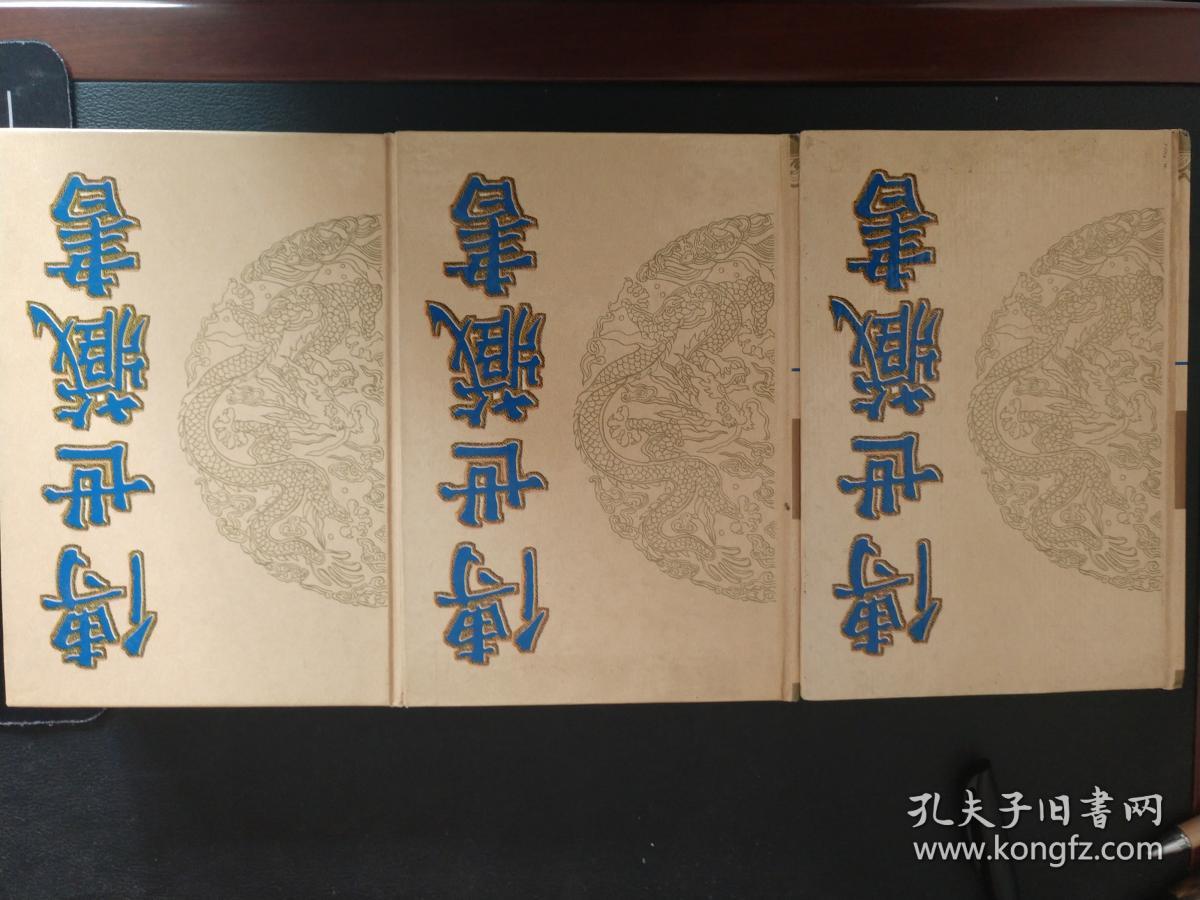 傳世藏書
傳世藏書
傳世藏書
孔夫子旧書网
www.kongfz.com